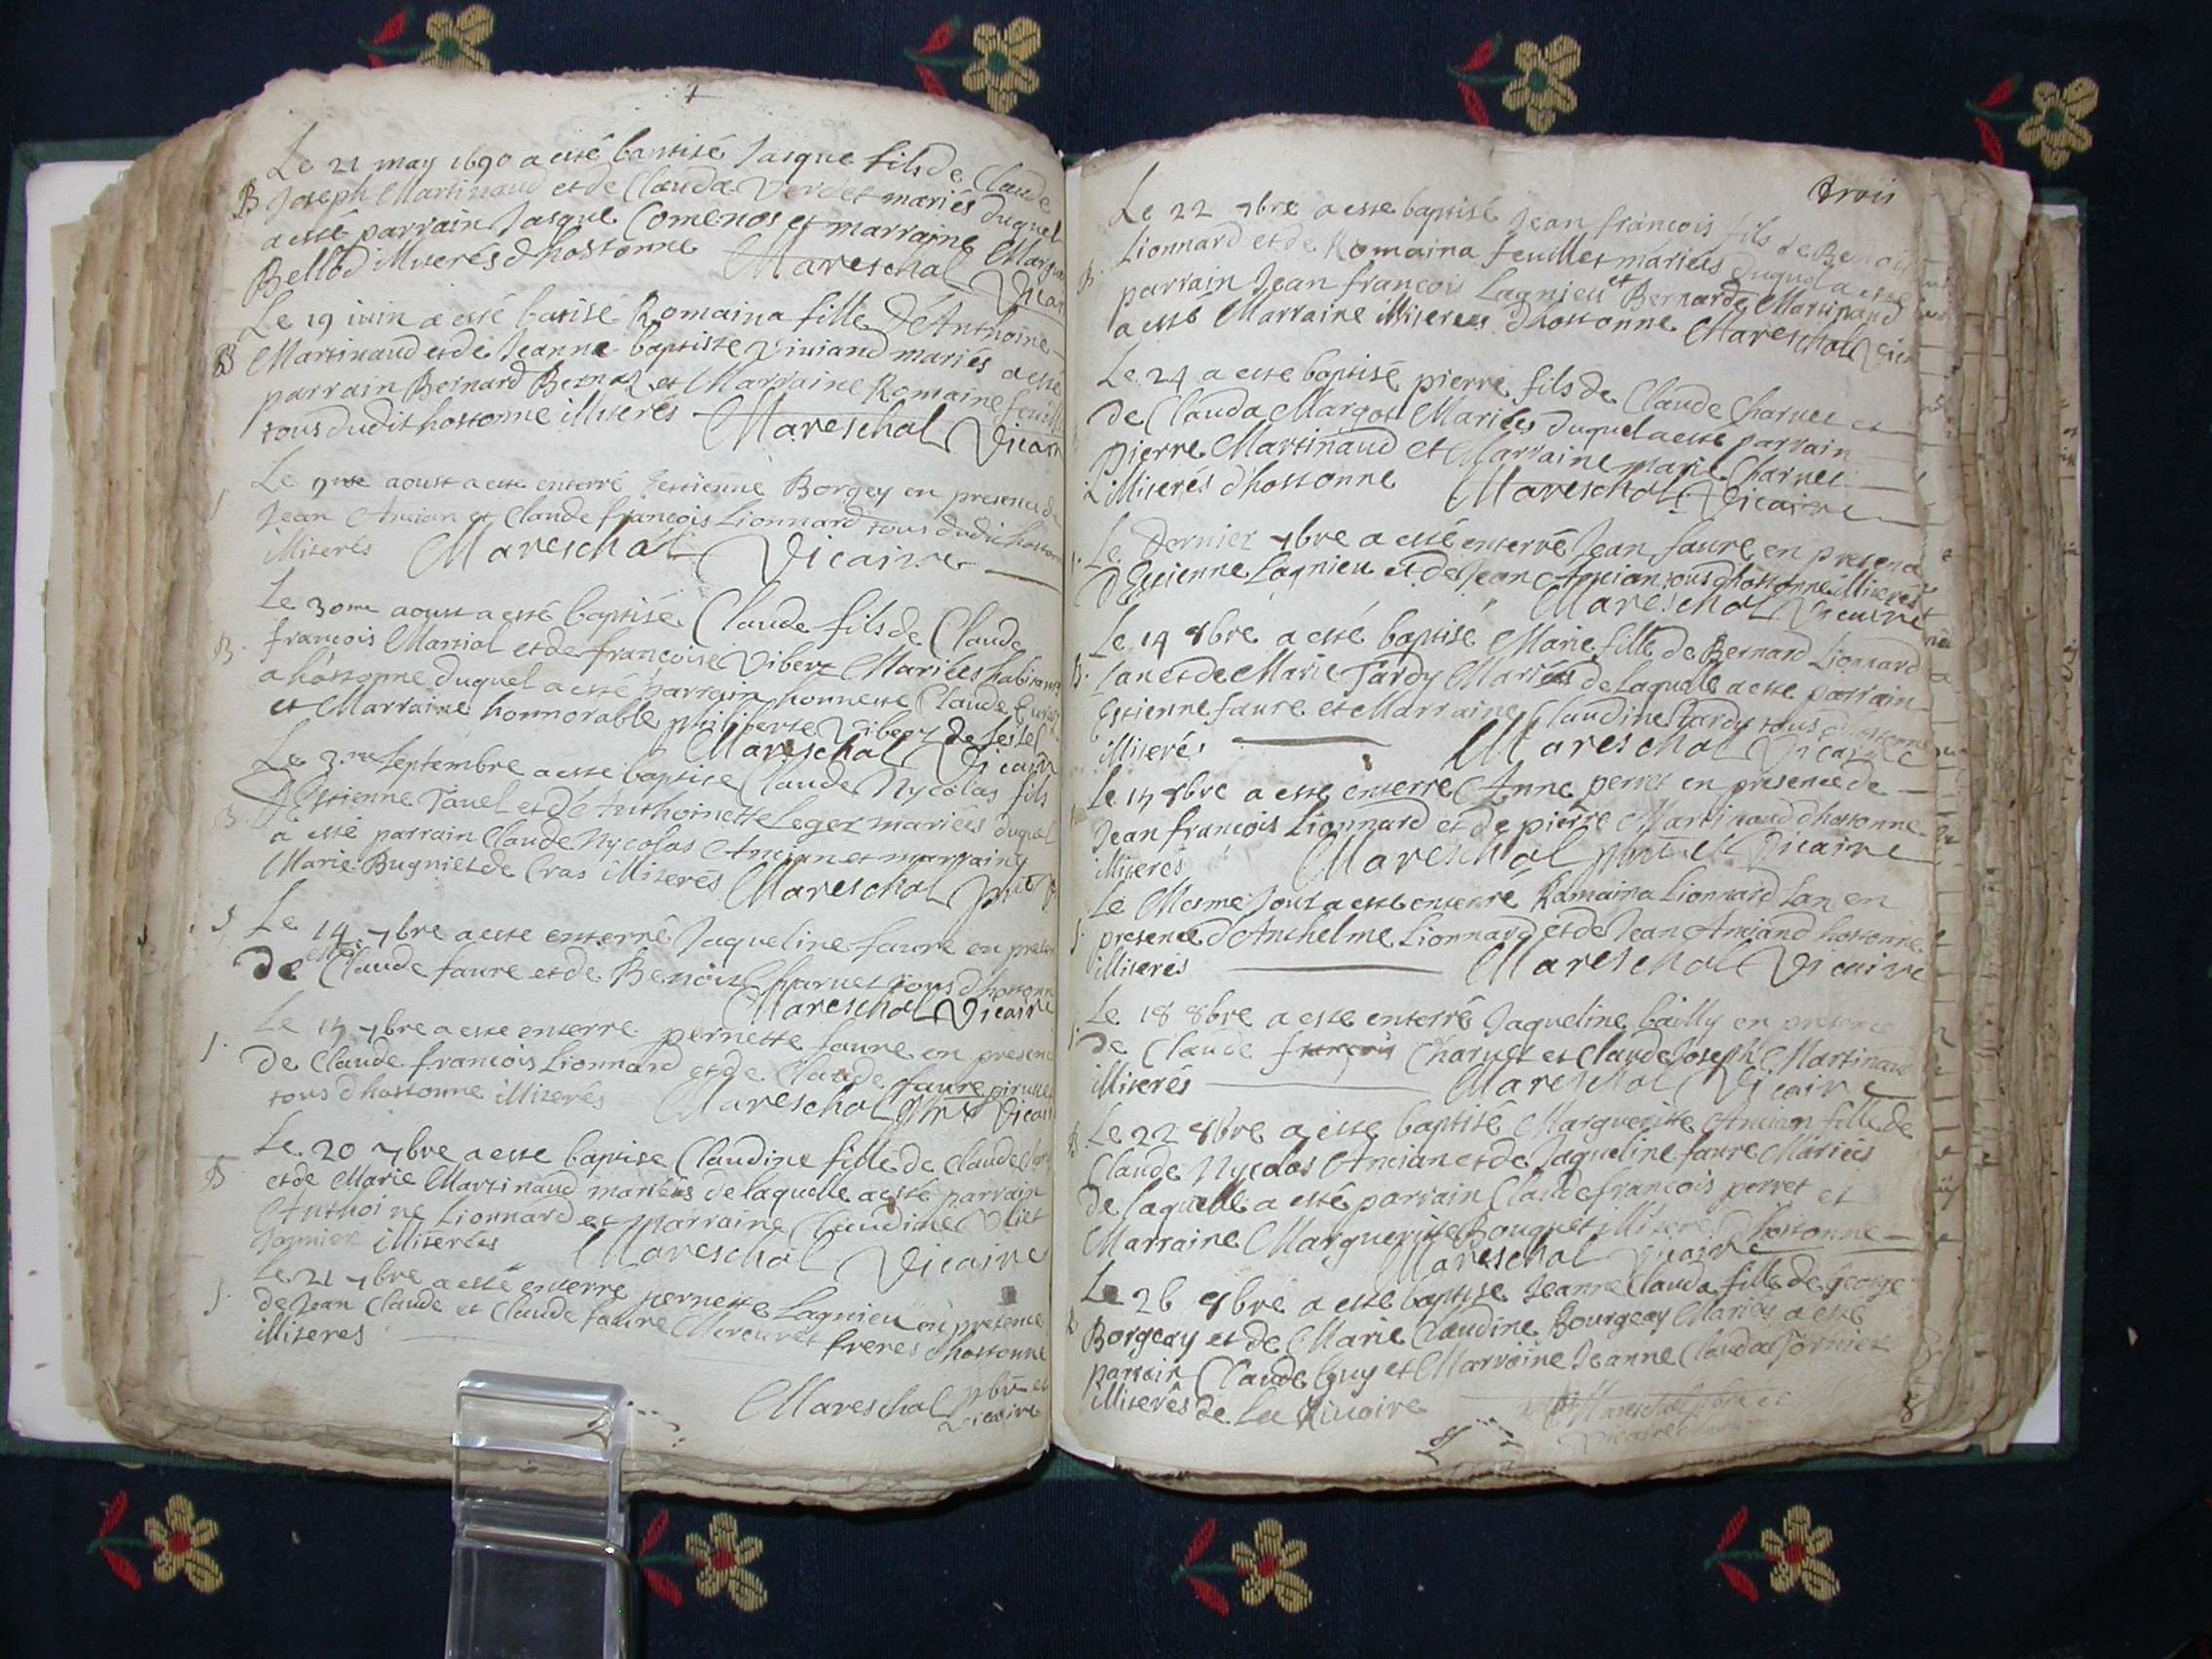 Le 21 may 1690 a esté baptisé Jasque fils de Claude
B Joseph Martinaud et de Clauda Verdet mariés duquel
a esté parrain Jasque Comenos et marraine
Bellod illiterés d'hostonne Mareschal Vicar
Le 19 iuin a esté batisé Romaina fille D'Anthoine
B Martinaud et de Jeanne baptiste Viuiand mariés a esté
parrain Bernard Bernaz et Marraine Romaine
tous dudit hostonne illiterés Mareschal Vicair
Le 9me aoust a esté enterré Estienne Borgey en presence de
S Jean Ancian et Claude francois Lionnard tous dudit
illiterés Mareschal Vicaire
Le 30me aoust a esté baptisé Claude fils de Claude
B. francois Martial et de francoise Vibert Mariees habitants
a hostonne duquel a esté parrain honneste Claude
et Marraine honnorable philiberte Vibert de
Mareschal Vicair
Le 3.me Septembre a esté baptise Claude Nycolas fils
D'Estienne Tauel et dé Anthoinette Leger mariées duquel
B. a esté parrain Claude Nycolas Ancian et marraine
Marie Bugniet de Cras illiterés Mareschal
S Le 14 7bre a esté enterré Jaqueline faure en presen
de Claude faure et de Benoit Charuet tous d'hostonne
Mareschal Vicaire
Le 15 7bre a esté enterre pernette faure en presenc
S. de Claude francois Lionnard et de Claude faure
tous d'hostonne illiterés Mareschal Vicair
Le 20 7bre a esté baptise Claudine fille de Claude
B et de Marie Martinaud mariées de laquelle a esté parrain
Anthoine Lionnard et marraine Claudine
illiterées Mareschal Vicaire
Le 21 7bre a esté enterre pernette Lagnieu en presence
S. de Jean Claude et Claude faure Mercuret freres d'hostonne
illiteres
Mareschal pbr et
Vicaire
trois
Le 22 7bre a esté baptisé Jean francois fils de Benoit
Lionnard et de Romaina feuillet mariées duquel a esté
B. parrain Jean francois Lagnieu et Bernarde Martinaud
a esté Marraine illiterées d'hostonne Mareschal Vica
Le 24 a esté baptisé pierre fils de Claude Charuet et
de Clauda Margot Mariées duquel a esté parrain
Pierre Martinaud et Marraine marie Charuet
illiterés d'hostonne Mareschal Vicaire
S. Le Dernier 7bre a esté enterré Jean faure en presence
D'Estienne Lagnieu et de Jean Ancian tous d'hostonne illiterés
Mareschal Vicaire
Le 14 8bre a esté baptisé Marie fille de Bernard Lionnard
B. Lan et de Marie Tardy Mariés de laquelle a esté parrain
Estienne faure et Marraine Claudine tardy tous d'hostonne
illiterés Mareschal Vicaire
Le 15 8bre a esté enterré Anne perret en presence de
Jean francois Lionnard et de pierre Martinaud d'hostonne
illiterés Mareschal pbre et Vicaire
Le Mesme Jour a esté enterré Romaina Lionnard Lan en
S. presence d'Anthelme Lionnard et de Jean Anciand hostonne
illiterés Mareschal Vicaire
Le 18 8bre a esté enterré Jaqueline bailly en presence
S. de Claude francois Charuet et Claude Joseph Martinaud
illiterés Mareschal Vicaire
B Le 22 8bre a esté baptisé Margueritte Ancian fille de
Claude Nycolas Ancian et de Jaqueline faure Mariées
de laquelle a esté parrain Claude francois perret et
Marraine Margueritte Bouquet illiterés d'hostonne
Mareschal Vicaire
Le 26 8bre a esté baptise Jeanne Clauda fille de George
B Borgeay et de Marie Claudine Bourgeay Mariés a esté
parrain Claude Guy et Marraine Jeanne Clauda
illiterés de La Riuoire
Mareschal pbre et
Vicaire